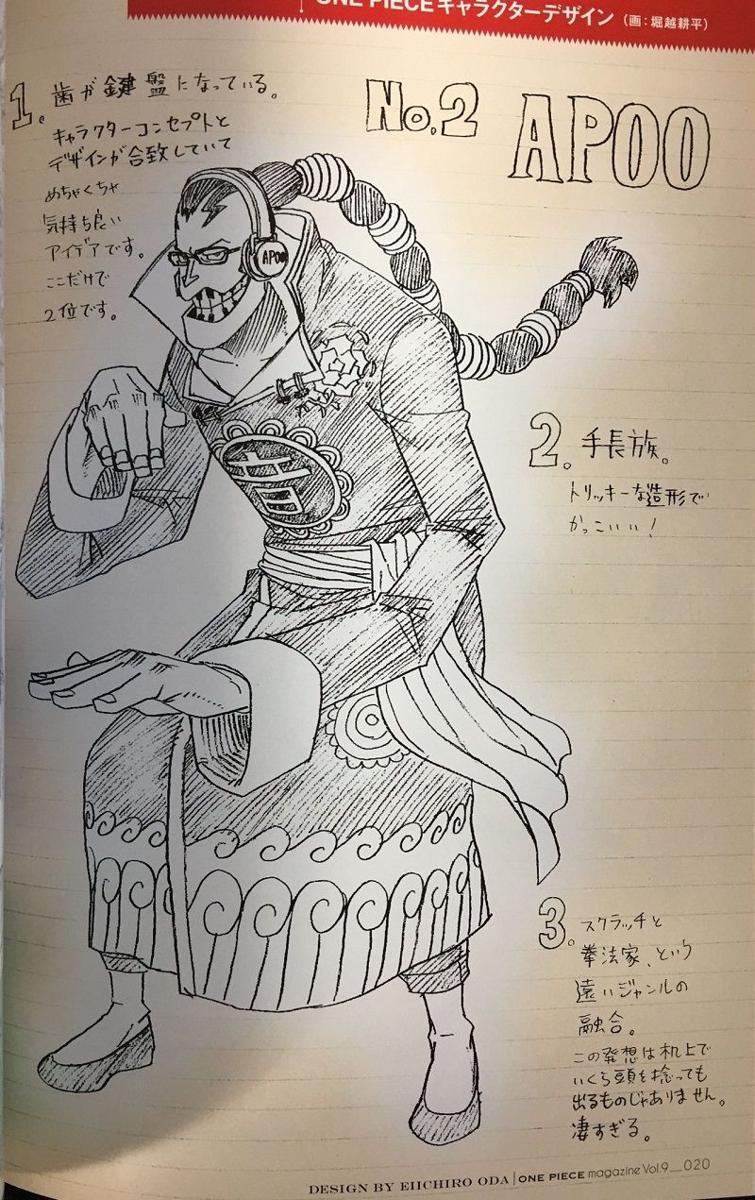 ONE PIECEキャラクターデザイン（画：堀越耕平）
No.2 APOO
1. 歯が鍵盤になっている。
キャラクターコンセプトと
デザインが合致していて
めちゃくちゃ
気持ち良い
アイデアです。
ここだけで
2位です。
APOO
音
2. 手長族。
トリッキーな造形で
かっこいい！
3. スクラッチと
拳法家、という
遠いジャンルの
融合。
この発想は机上で
いくら頭を捻っても
出るものじゃありません。
凄すぎる。
DESIGN BY EIICHIRO ODA | ONE PIECE magazine Vol.9__020